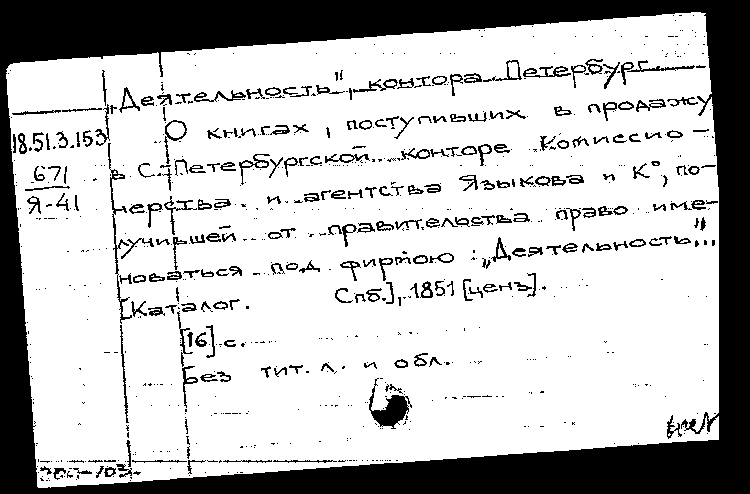 „Деятельность", контора. Петербург.
18.51.3.153
671
Я-41
О книгах, поступивших в продажу
в С.-Петербургской конторе Комиссио-
нерства и агентства Языкова и К°, по-
лучившей от правительства право име-
новаться под фирмою: „Деятельность"...
[Каталог. Спб.], 1851 [ценз].
[16] с.
Без тит. л. и обл.